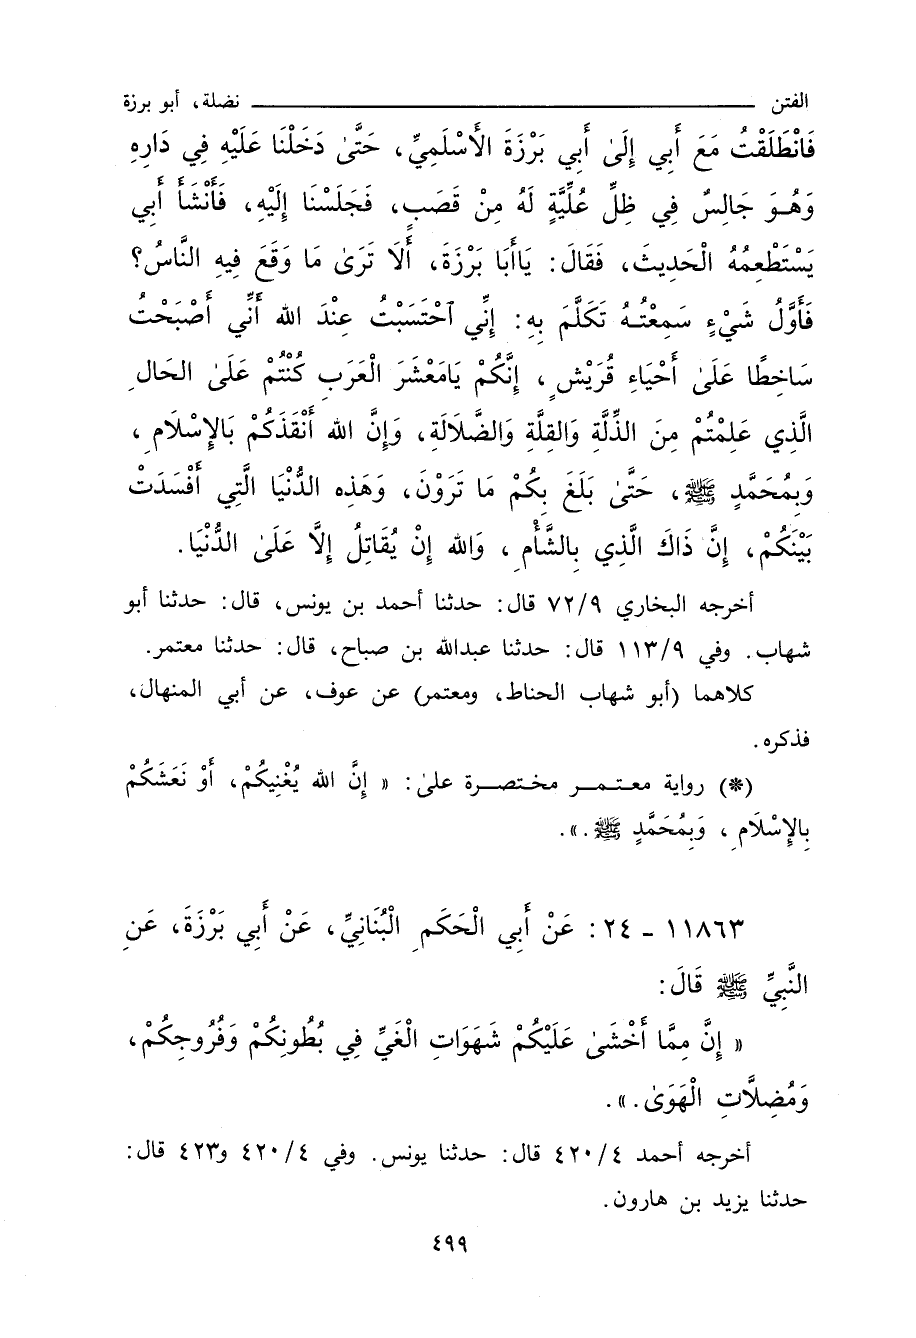 الفتن ــــــــــــــــــــ نضلة، أبو برزة
فَانْطَلَقْتُ مَعَ أَبِي إِلَىٰ أَبِي بَرْزَةَ الأَسْلَمِيِّ، حَتَّىٰ دَخَلْنَا عَلَيْهِ فِي دَارِهِ
وَهُوَ جَالِسٌ فِي ظِلِّ عُلِّيَّةٍ لَهُ مِنْ قَصَبٍ، فَجَلَسْنَا إِلَيْهِ، فَأَنْشَأَ أَبِي
يَسْتَطْعِمُهُ الْحَدِيثَ، فَقَالَ: يَاأَبَا بَرْزَةَ، أَلَا تَرَىٰ مَا وَقَعَ فِيهِ النَّاسُ؟
فَأَوَّلُ شَيْءٍ سَمِعْتُهُ تَكَلَّمَ بِهِ: إِنِّي ٱحْتَسَبْتُ عِنْدَ الله أَنِّي أَصْبَحْتُ
سَاخِطًا عَلَىٰ أَحْيَاءِ قُرَيْشٍ، إِنَّكُمْ يَامَعْشَرَ الْعَرَبِ كُنْتُمْ عَلَىٰ الحَالِ
الَّذِي عَلِمْتُمْ مِنَ الذِّلَّةِ وَالقِلَّةِ وَالضَّلَالَةِ، وَإِنَّ الله أَنْقَذَكُمْ بَالإِسْلَامِ،
وَبِمُحَمَّدٍ ﷺ، حَتَّىٰ بَلَغَ بِكُمْ مَا تَرَوْنَ، وَهَذِهِ الدُّنْيَا الَّتِي أَفْسَدَتْ
بَيْنَكُمْ، إِنَّ ذَاكَ الَّذِي بِالشَّأْمِ، وَالله إِنْ يُقَاتِلُ إِلاَّ عَلَىٰ الدُّنْيَا.
أخرجه البخاري ٧٢/٩ قال: حدثنا أحمد بن يونس، قال: حدثنا أبو
شهاب. وفي ١١٣/٩ قال: حدثنا عبدالله بن صباح، قال: حدثنا معتمر.
كلاهما (أبو شهاب الحناط، ومعتمر) عن عوف، عن أبي المنهال،
فذكره.
(*) رواية معتمر مختصرة علىٰ: « إِنَّ الله يُغْنِيكُمْ، أَوْ نَعَشَكُمْ
بِالإِسْلَامِ، وَبِمُحَمَّدٍ ﷺ.».
١١٨٦٣ - ٢٤: عَنْ أَبِي الْحَكَمِ الْبُنَانِيِّ، عَنْ أَبِي بَرْزَةَ، عَنِ
النَّبِيِّ ﷺ قَالَ:
« إِنَّ مِمَّا أَخْشَىٰ عَلَيْكُمْ شَهَوَاتِ الْغَيِّ فِي بُطُونِكُمْ وَفُرُوجِكُمْ،
وَمُضِلاَّتِ الْهَوَىٰ.».
أخرجه أحمد ٤٢٠/٤ قال: حدثنا يونس. وفي ٤٢٠/٤ و٤٢٣ قال:
حدثنا يزيد بن هارون.
٤٩٩